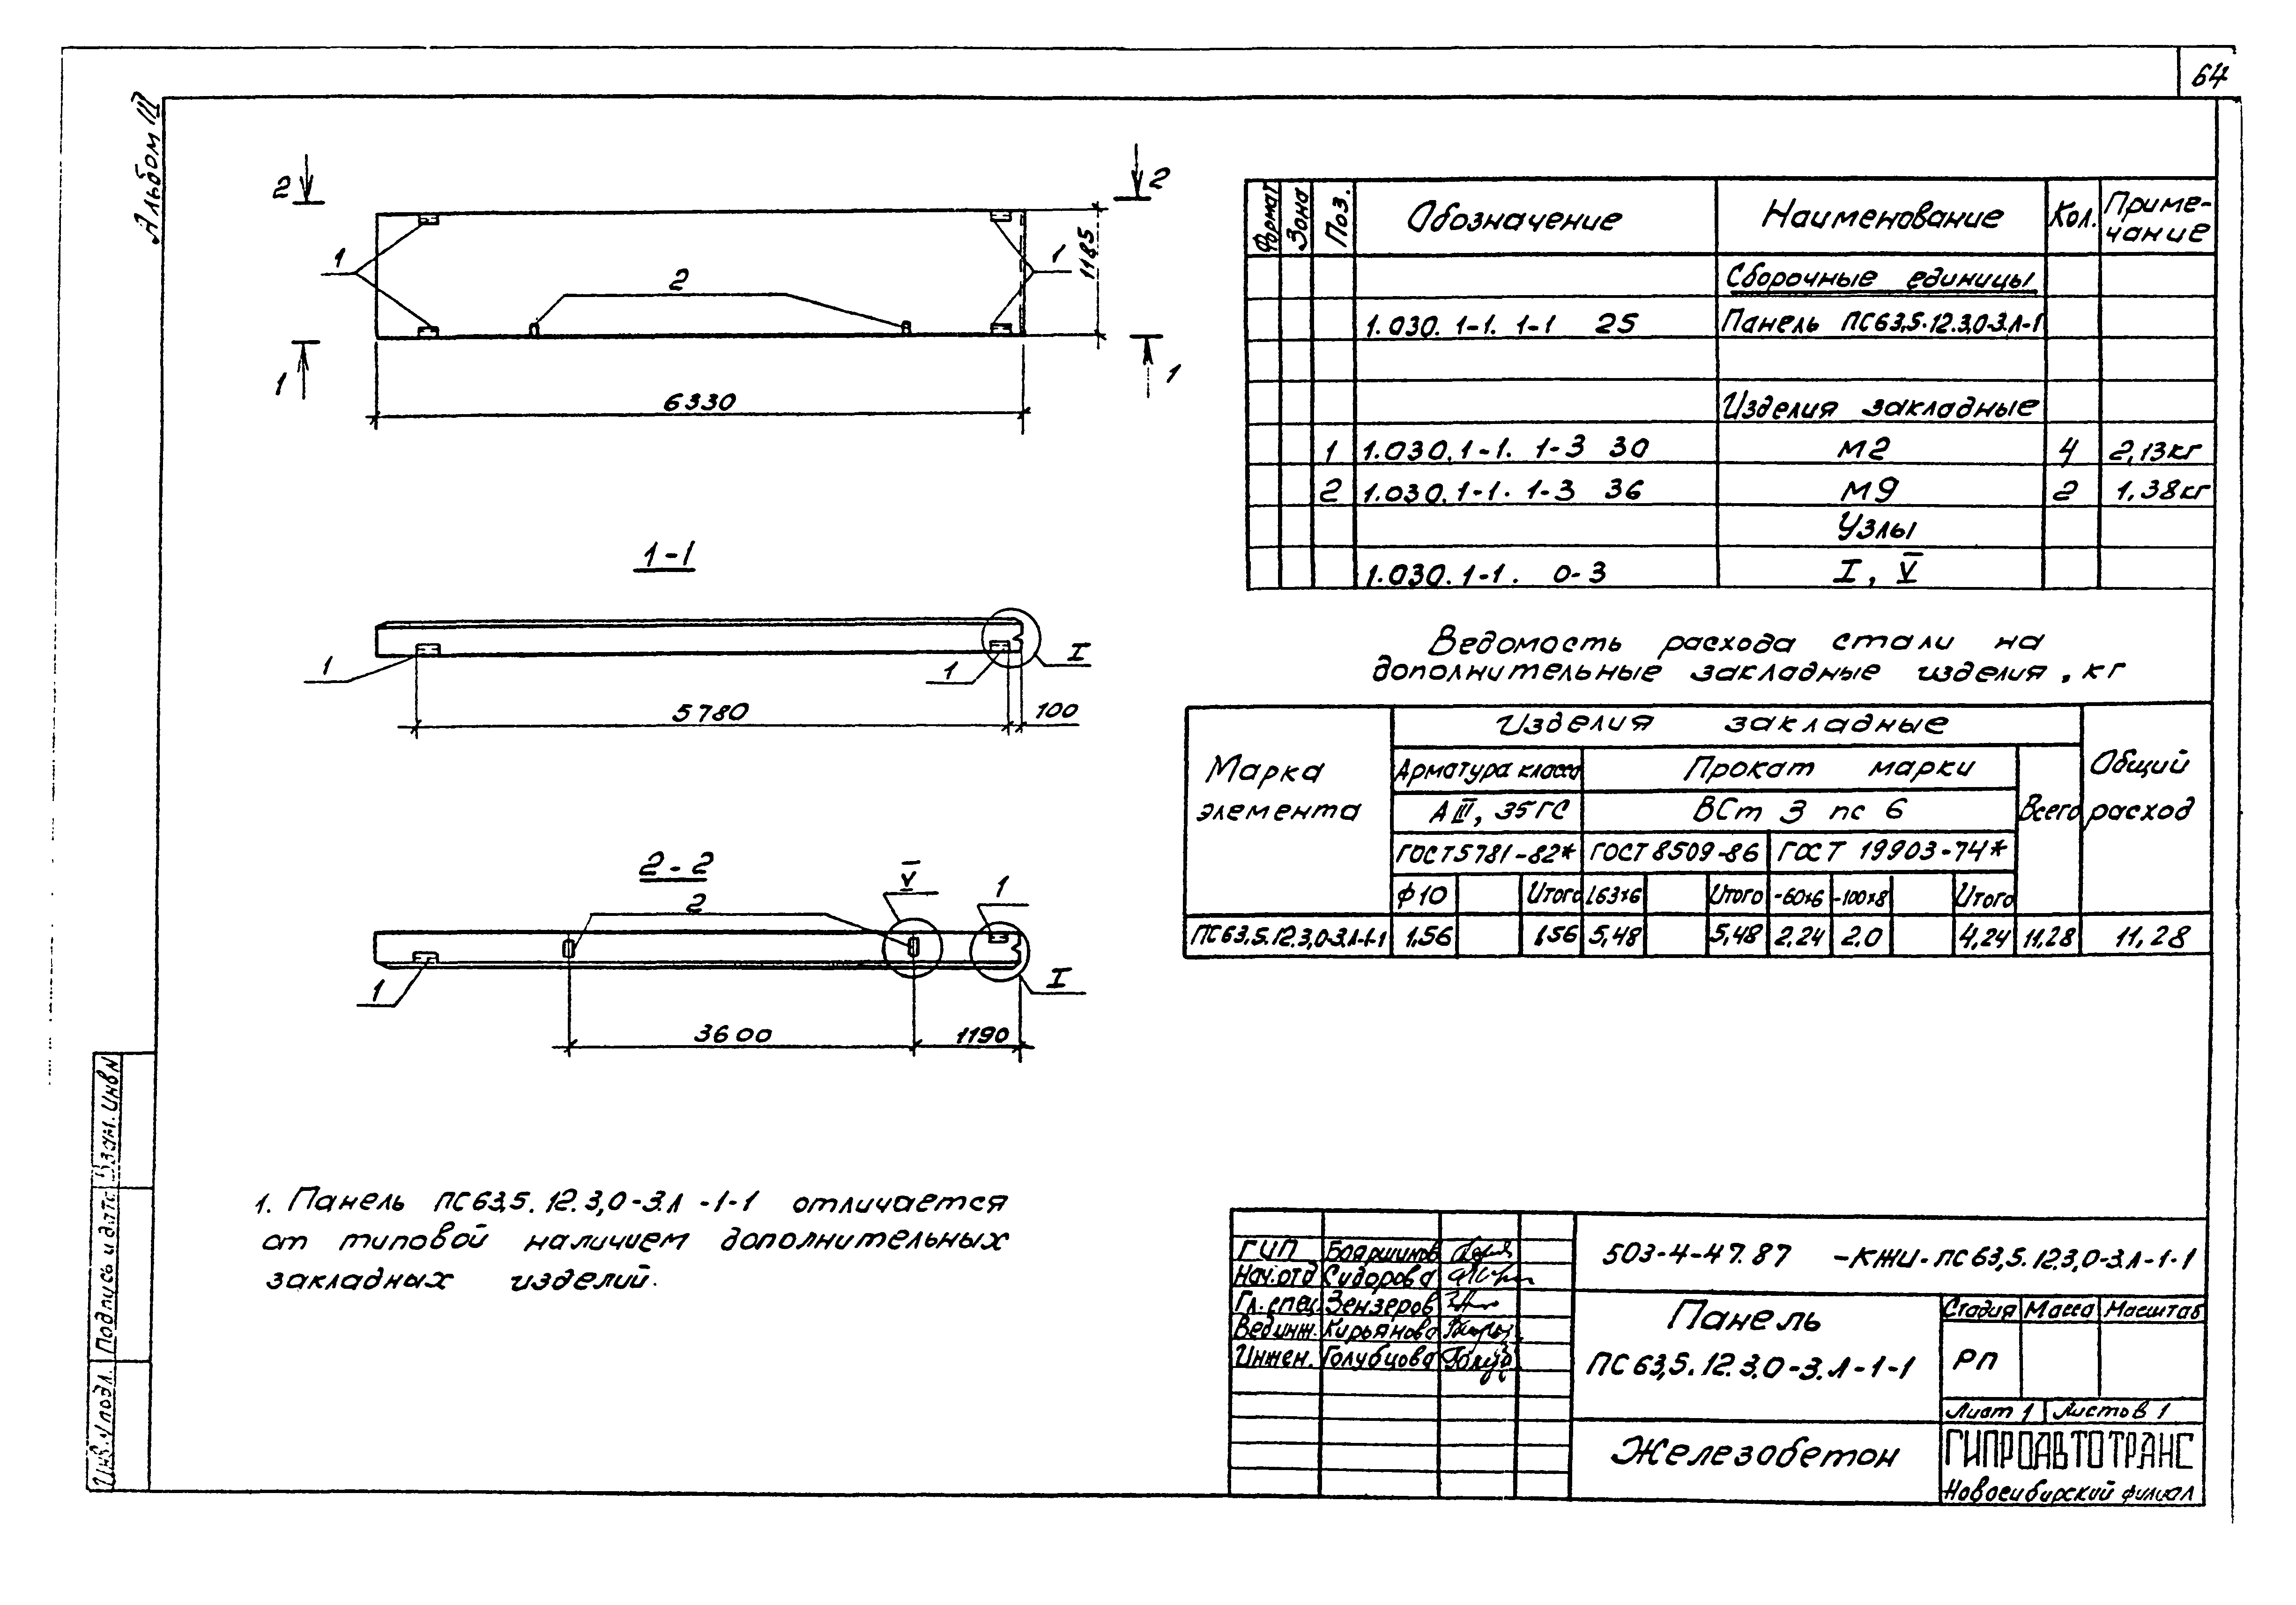 64
Альбом III
2 2
1 1
2
1185
1 1
6330
1-1
1 1 I
5780 100
2-2
V 1
2
1 I
3600 1190
1. Панель ПС63,5.12.3,0-3.Л-1-1 отличается
от типовой наличием дополнительных
закладных изделий.
Формат Зона Поз. Обозначение Наименование Кол. Приме-
чание
Сборочные единицы
1.030.1-1. 1-1 25 Панель ПС63,5.12.3,0-3.Л-1
Изделия закладные
1 1.030.1-1. 1-3 30 М2 4 2,13кг
2 1.030.1-1. 1-3 36 М9 2 1,38кг
Узлы
1.030.1-1. 0-3 I, V
Ведомость расхода стали на
дополнительные закладные изделия, кг
Марка элемента Изделия закладные Общий расход
Арматура класса Прокат марки Всего
А III, 35ГС ВСт 3 пс 6
ГОСТ5781-82* ГОСТ8509-86 ГОСТ 19903-74*
ф10 Итого L63×6 Итого -60×6 -100×8 Итого
ПС63,5.12.3,0-3.Л-1-1 1,56 1,56 5,48 5,48 2,24 2,0 4,24 11,28 11,28
ГИП Бояршинов
Нач.отд Сидорова
Гл.спец. Зензеров
Вед.инж. Кирьянова
Инжен. Голубцова
503-4-47.87 -КЖИ-ПС63,5.12.3,0-3.Л-1-1
Панель
ПС63,5.12.3,0-3.Л-1-1
Стадия Масса Масштаб
РП
Лист 1 Листов 1
Железобетон
ГИПРОАВТОТРАНС
Новосибирский филиал
Взам. инв N
Подпись и дата
Инв. N подл.